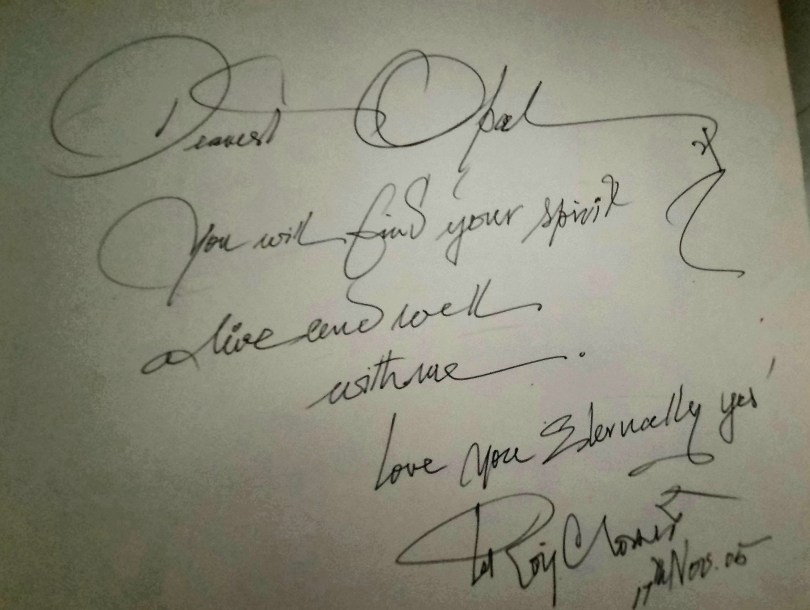 Dearest Opal
You will find your spirit
alive and well
with me.
Love you Eternally yes
Roy
17th Nov. 05